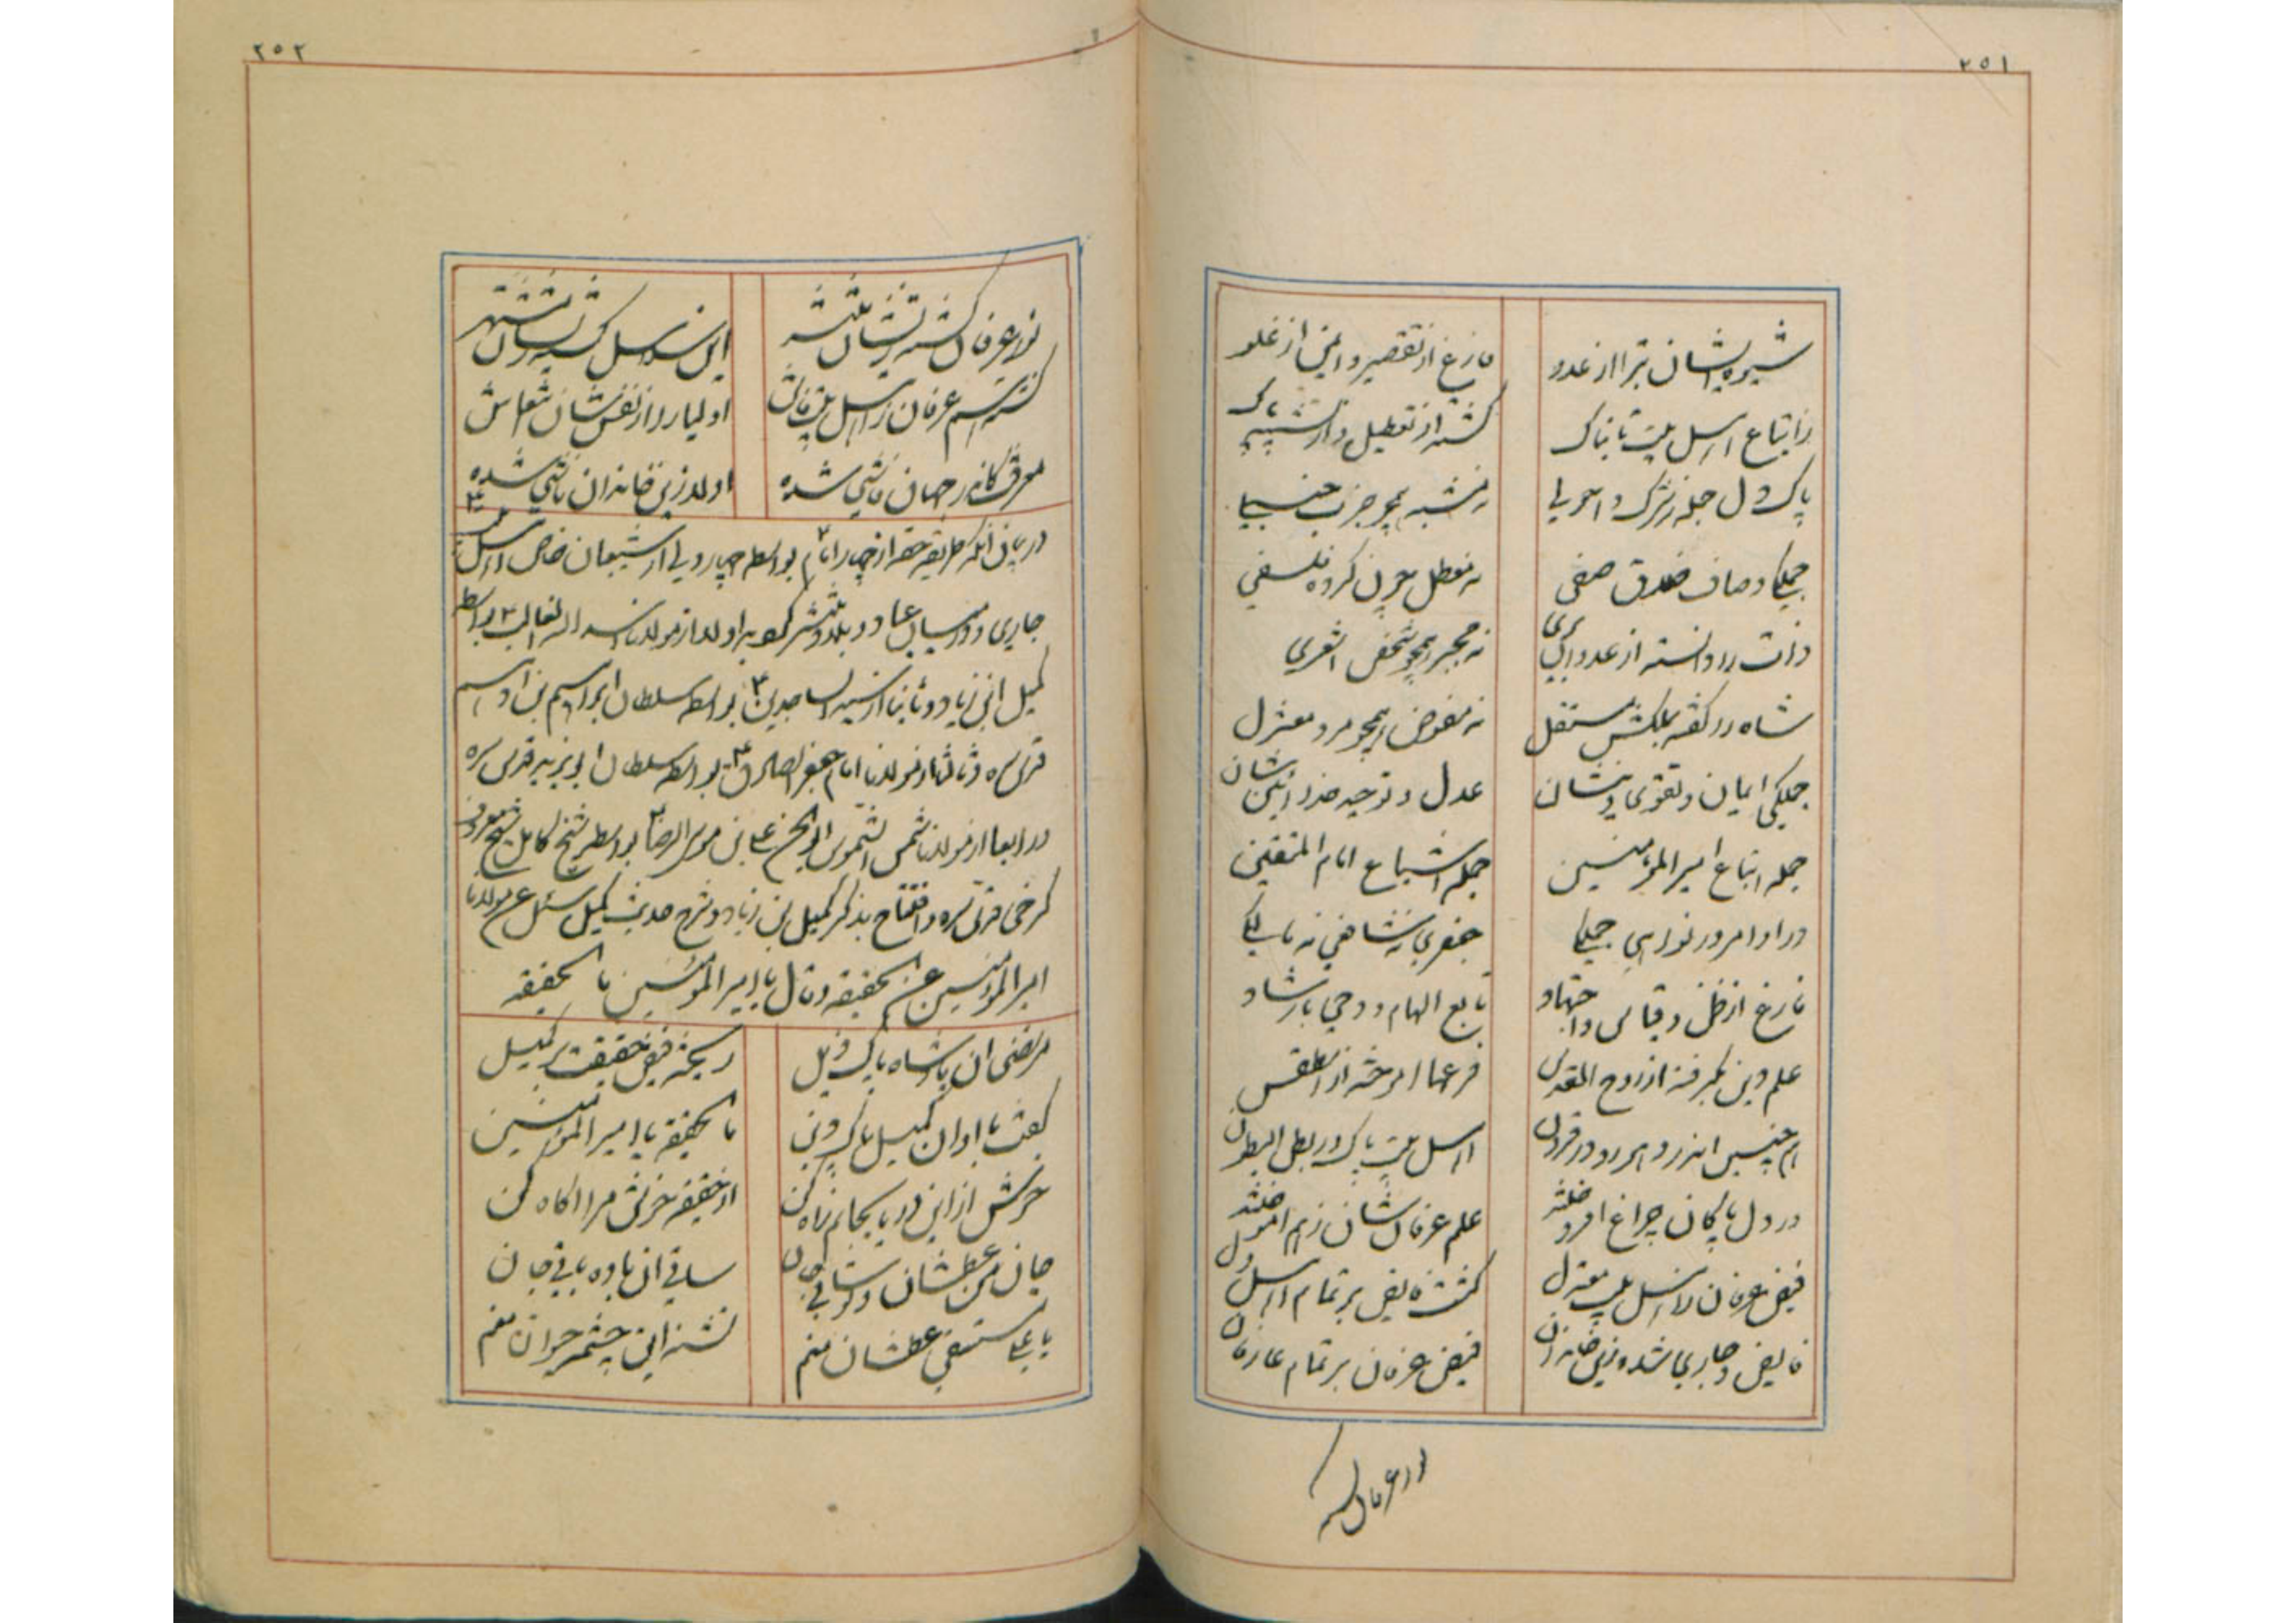 ٢٥١
شیوه ایشان تبرا از عدو فارغ از تقصیر و ایمن از غلو
ز اتباع اهل بیت تابناک گشته از تعطیل و از تشبیه پاک
پاک دل جمله ز شرک و احولی نه مشبه همچو حزب حنبلی
جملگی وصاف خلاق صفی نه معطل چون گروه فلسفی
ذات را دانسته از عدوان بری نه مجبر همچو شخص اشعری
شاه را گفته بملکش مستقل نه مفوض همچو مرد معتزل
جملگی ایمان و تقوی دینشان عدل و توحید خدا آئینشان
جمله اتباع امیر المؤمنین جمله اشیاع امام المتقین
در اوامر در نواهی جملگی جعفری نه شافعی نه مالکی
فارغ از ظن و قیاس و اجتهاد تابع الهام و وحی با رشاد
علم دین بگرفته از روح القدس فرعها آموخته از
همچنین اندر دهور و در قرون اهل بیت پاک در بطن البطون
در دل پاکان چراغ افروختند علم عرفانشان ز هم آموختند
فیض عرفان ز اهل بیت معتزل گشت فایض بر تمام اهل دل
فایض و جاری شده زین خاندان فیض عرفان بر تمام عارفان
نور عرفان گشته
٢٥٢
نور عرفان گشته زیشان منتشر این سلاسل گشته زیشان مشتهر
گشته اسم عرفان ز اهل بیت فاش اولیا را از نفسشان انتعاش
معرفت کاندر جهان فاشی شده اولا زین خاندان ناشی شده
در بیان آنکه طریقه حقه از چهار امام بواسطه چهار ولی از شیعیان خاص اهل بیت
جاری و در میان عباد و بلاد منتشر گردیده اولا از مولانا اسد الله الغالب بواسطه
کمیل ابن زیاد و ثانیا از سید الساجدین بواسطه سلطان ابراهیم بن ادهم
قدس سره و ثالثا از مولانا امام جعفر الصادق بواسطه سلطان ابویزید قدس سره
و رابعا از مولانا شمس الشموس ابو الحسن علی بن موسی الرضا بواسطه شیخ کامل شیخ معروف
کرخی قدس سره و افتتاح بذکر کمیل بن زیاد و شرح حدیث کمیل سئل عن مولانا
امیر المؤمنین عن الحقیقه و قال یا امیر المؤمنین ما الحقیقه
مرتضی آن پادشاه پاک ذیل ریخته فیض حقیقت بر کمیل
گفت با او آن کمیل پاک دین ما الحقیقه یا امیر المؤمنین
جرعش از این دریا بجانم راه کن از حقیقه جرعش مرا آگاه کن
جان من عطشان و تو ساقی جان ساقی آن باده باقی جان
یا علی مستسقی عطشان منم تشنه این چشمه حیوان منم